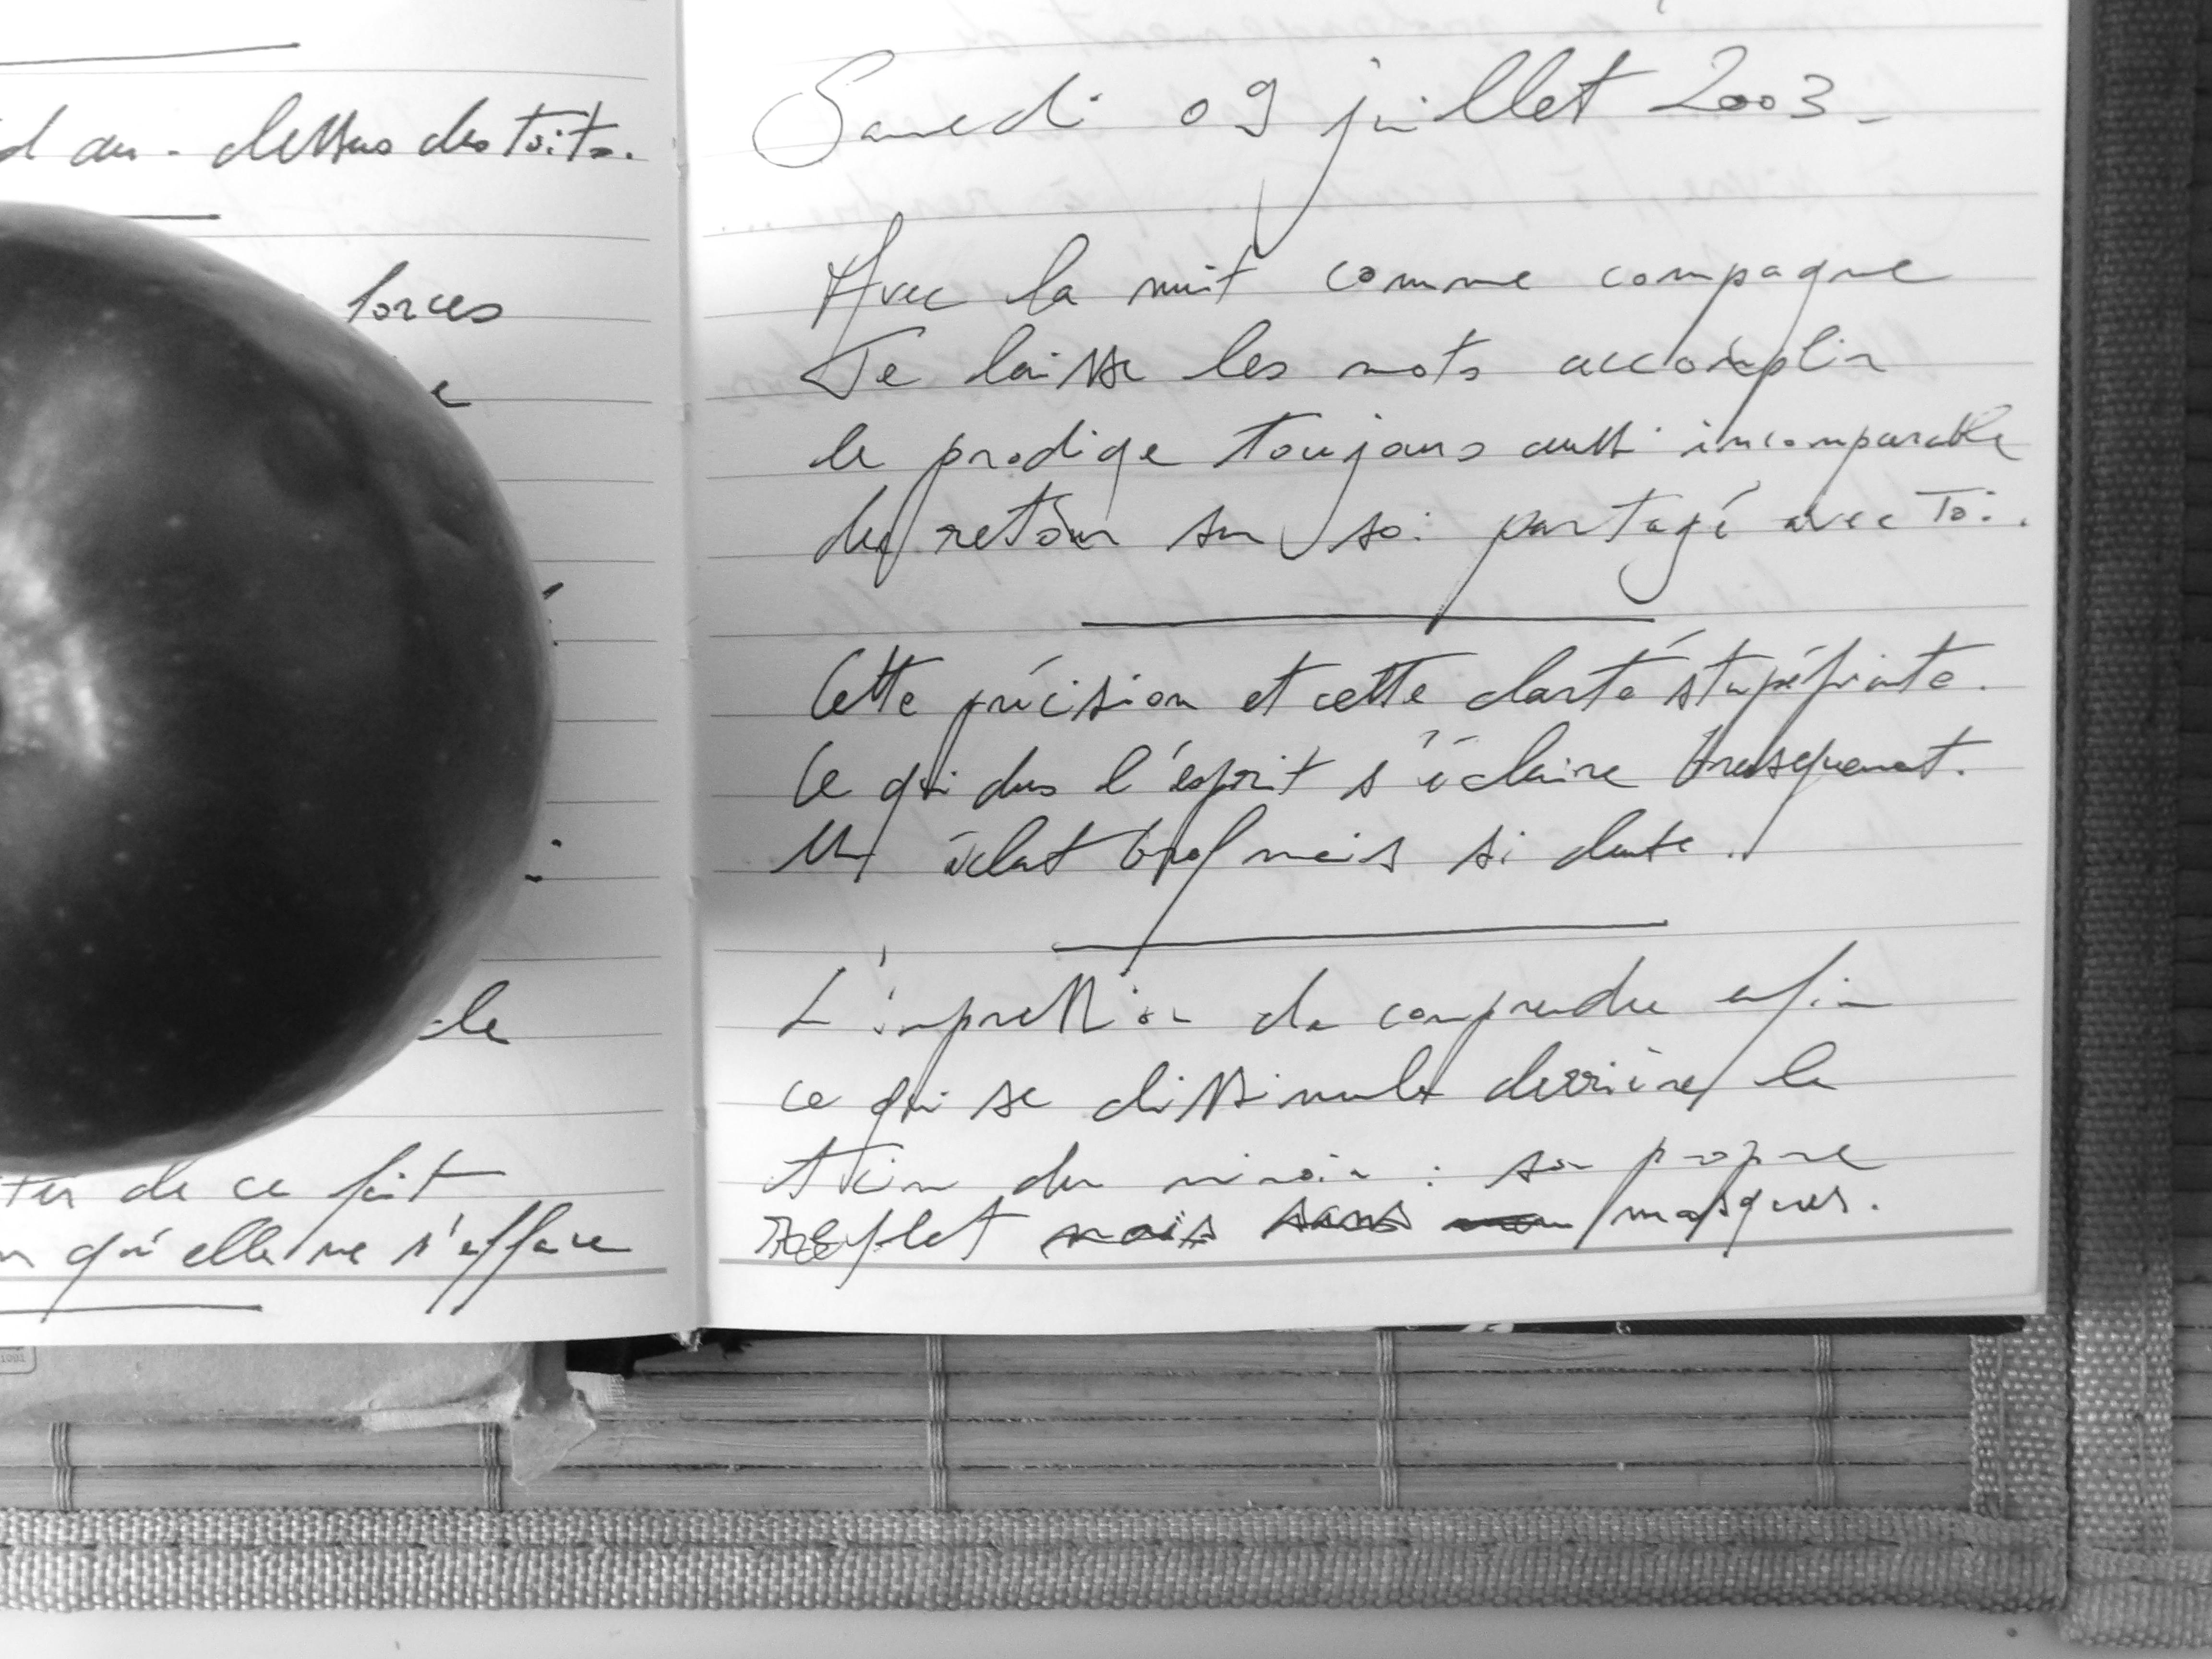 d au-dessus des toits.
forces
e
de
ter de ce fait
qu'elle ne s'efface
Samedi 09 juillet 2003 -
Avec la nuit comme compagne
Je laisse les mots accomplir
le prodige toujours aussi incomparable
du retour sur soi partagé avec Toi.
Cette précision et cette clarté stupéfiante.
Ce qui dans l'esprit s'éclaire brusquement.
Un éclat bref mais si dense.
L'impression de comprendre enfin
ce qui se dissimule derrière le
tain du miroir : son propre
reflet mais sans masques.